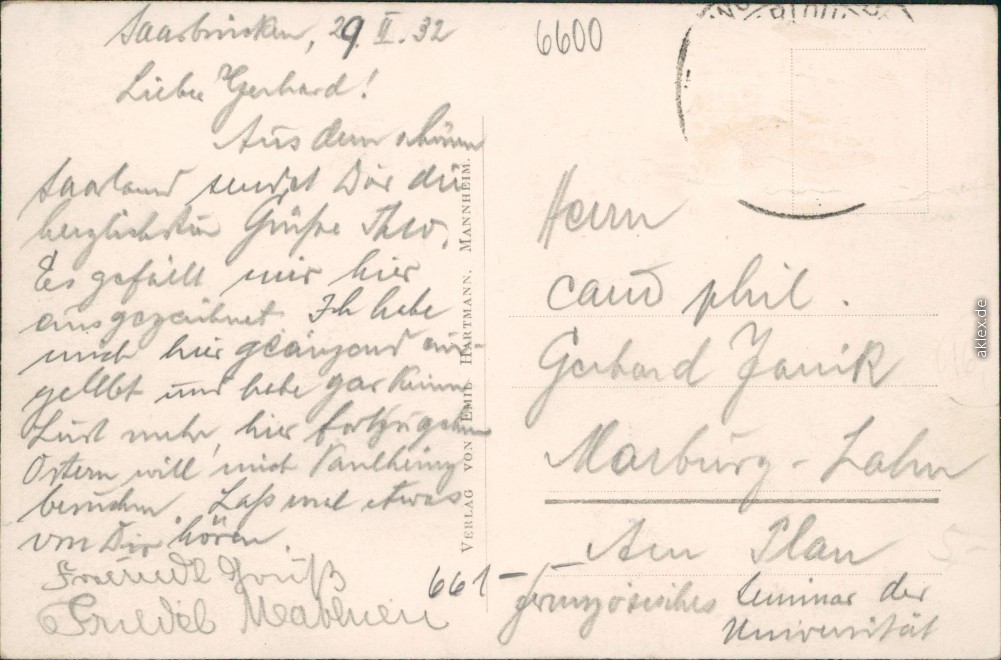 Saarbrücken, 29. II. 32
6600
Lieber Gerhard!
Aus dem schönen
Saarland sendet Dir die
herzlichsten Grüße Theo.
Es gefällt mir hier
ausgezeichnet. Ich habe
mich hier glänzend ein-
gelebt und habe gar keine
Lust mehr, hier fortzugehen
Ostern will mich Karlheinz
besuchen. Laß mal etwas
von Dir hören.
Freundl Gruß
Friedel
661-
VERLAG VON EMIL HARTMANN, MANNHEIM.
Herrn
cand phil.
Gerhard Janik
Marburg-Lahn
Am Plan
französisches Seminar der
Universität
5-
aklex.de